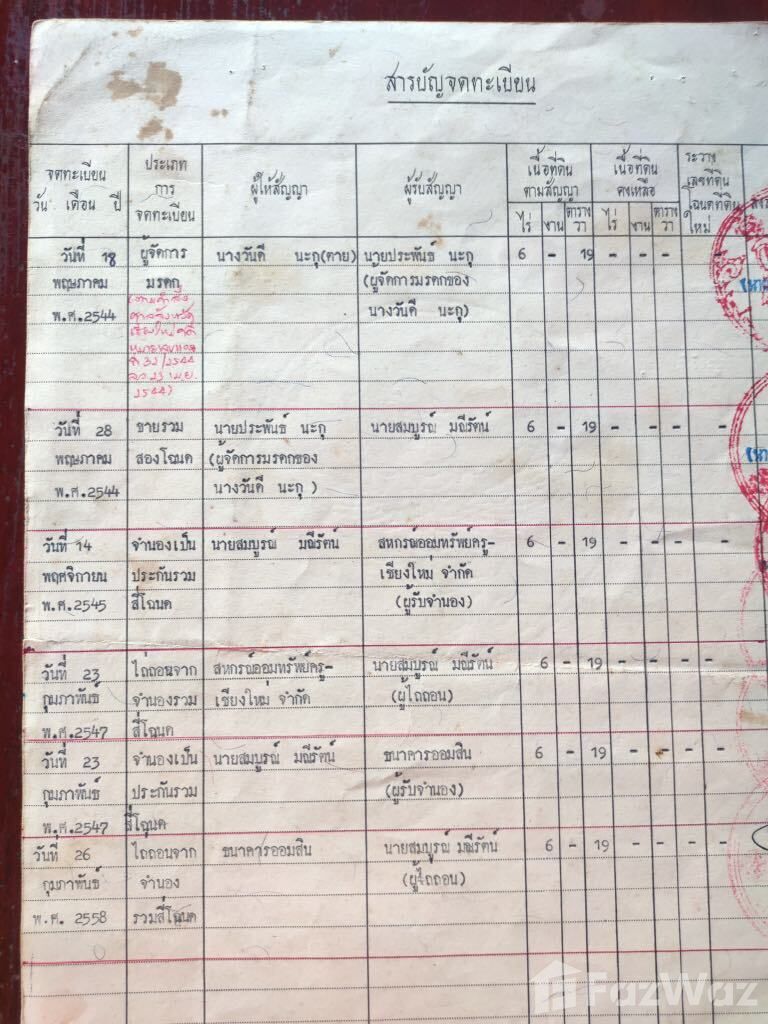 สารบัญจดทะเบียน
จดทะเบียน ประเภท ผู้ให้สัญญา ผู้รับสัญญา เนื้อที่ดิน เนื้อที่ดิน ระวาง
วัน เดือน ปี การ ตามสัญญา คงเหลือ เลขที่ดิน
จดทะเบียน ไร่ งาน ตาราง ไร่ งาน ตาราง โฉนดที่ดิน
วา วา ใหม่
วันที่ 18 ผู้จัดการ นางวันดี นะกุ(ตาย) นายประพันธ์ นะกุ 6 - 19 - - - -
พฤษภาคม มรดก (ผู้จัดการมรดกของ
พ.ศ.2544 (ตามคำสั่ง นางวันดี นะกุ)
ศาลจังหวัด
เชียงใหม่ คดี
หมายเลขแดง
ที่ 32/2544
ลว 23 เม.ย.
2544)
วันที่ 28 ขายรวม นายประพันธ์ นะกุ นายสมบูรณ์ มณีรัตน์ 6 - 19 - - - -
พฤษภาคม สองโฉนด (ผู้จัดการมรดกของ
พ.ศ.2544 นางวันดี นะกุ )
วันที่ 14 จำนองเป็น นายสมบูรณ์ มณีรัตน์ สหกรณ์ออมทรัพย์ครู- 6 - 19 - - - -
พฤศจิกายน ประกันรวม เชียงใหม่ จำกัด
พ.ศ.2545 สี่โฉนด (ผู้รับจำนอง)
วันที่ 23 ไถ่ถอนจาก สหกรณ์ออมทรัพย์ครู- นายสมบูรณ์ มณีรัตน์ 6 - 19 - - - -
กุมภาพันธ์ จำนองรวม เชียงใหม่ จำกัด (ผู้ไถ่ถอน)
พ.ศ.2547 สี่โฉนด
วันที่ 23 จำนองเป็น นายสมบูรณ์ มณีรัตน์ ธนาคารออมสิน 6 - 19 - - - -
กุมภาพันธ์ ประกันรวม (ผู้รับจำนอง)
พ.ศ.2547 สี่โฉนด
วันที่ 26 ไถ่ถอนจาก ธนาคารออมสิน นายสมบูรณ์ มณีรัตน์ 6 - 19 - - - -
กุมภาพันธ์ จำนอง (ผู้ไถ่ถอน)
พ.ศ. 2558 รวมสี่โฉนด
FazWaz